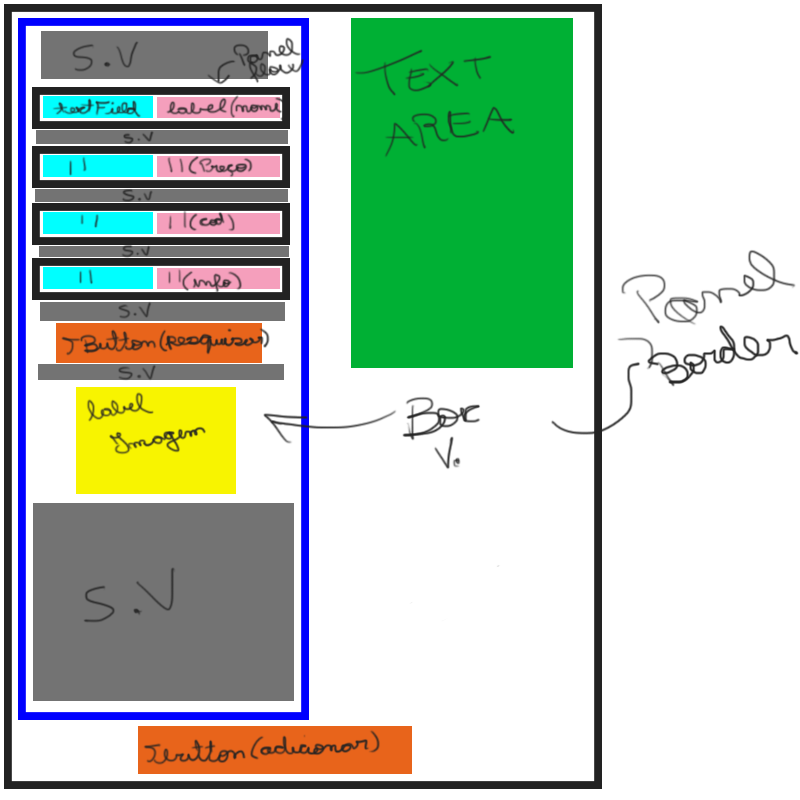 S.V
Panel
flow
textField label(nomi
S.V
11 11(Preço)
S.V
11 11(cod)
S.V
11 11(info)
S.V
JButton(pesquisar)
S.V
label
Imagem
S.V
TEXT
AREA
Box
V.
Panel
Border
JButton(adicionar)